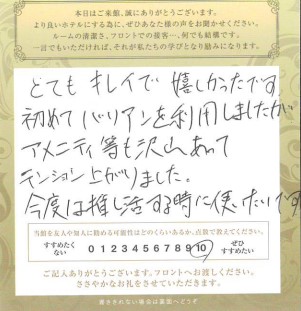 本日はご来館、誠にありがとうございます。
より良いホテルにする為に、ぜひあなた様の声をお聞かせください。
ルームの清潔さ、フロントでの接客…、何でも結構です。
一言でもいただければ、それが私たちの学びとなり励みになります。
とても キレイで 嬉しかったです
初めて バリアンを利用しましたが
アメニティ等も沢山あって
テンション上がりました。
今度は推し活する時に使いたいです
当館を友人や知人に勧める可能性はどのくらいあるか、点数で教えてください。
すすめたくない 0 1 2 3 4 5 6 7 8 9 10 ぜひすすめたい
ご記入ありがとうございます。フロントへお渡しください。
ささやかなお礼をさせていただきます。